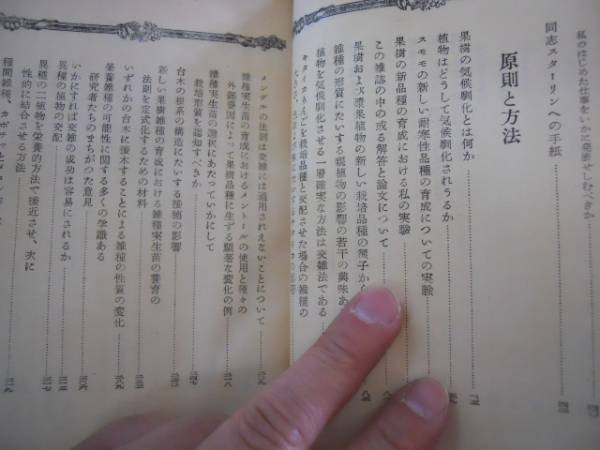 私のはじめた仕事をいかに発展せしむべきか
同志スターリンへの手紙
原則と方法
果樹の気候馴化とは何か
植物はどうして気候馴化されうるか
スモモの新しい耐寒性品種の育成についての実験
果樹の新品種の育成における私の実験
この雑誌の中の或る解答と論文について
果樹および漿果植物の新しい栽培品種の種子から
雑種の形質にたいする親植物の影響の若干の興味あ
植物を気候馴化させる一層確実な方法は交雑法である
栽培品種と交配させた場合の雑種の
メンデルの法則は交雑には適用されえないことについて
雑種実生苗の育成におけるメントールの使用と種々の
外部要因によって果樹品種に生ずる顕著な変化の例
雑種実生苗の選択にあたっていかにして
栽培形質を認知すべきか
台木の根系の構造にたいする接穂の影響
新しい果樹雑種の育成における雑種実生苗の養育の
法則を定式化するための材料
いずれかの台木に接木することによる雑種の性質の変化
栄養雑種の可能性に関する多くの学識ある
研究者たちのまちがった意見
いかにすれば交雑の成功は容易にされるか
異種の植物の交配
異種の二植物を栄養的方法で接近させ、次に
性的に結合させる方法
種間雑種